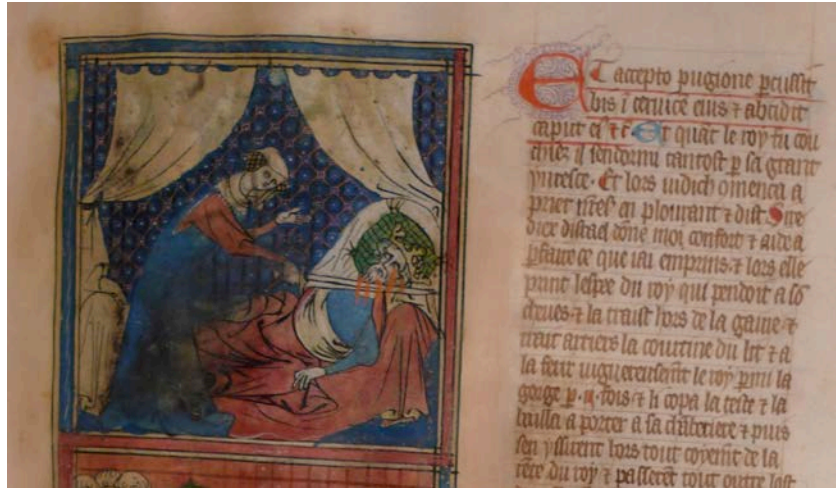 ET accepto pugione pcussit
bis i ceruice eius ⁊ abcidit
caput ei⁹ ⁊ c̄ Et quāt le roy fu cou
chiez il sendormi tantost p sa grant
yuresce · Et lors iudich omenca a
prier en plourant ⁊ dist · Sire
diex disrael done moi confort ⁊ aide a
pfaire ce que iai emprins · ⁊ lors elle
print lespee du roy qui pendoit a sō
cheues ⁊ la traist hors de la gaine ⁊
trait arriers la courtine du lit ⁊ a
la ferit le roy pmi la
gorge p · ii · fois ⁊ li copa la teste ⁊ la
bailla a porter a sa ⁊ puis
sen yssirent hors tout coyemēt de la
tēte du roy ⁊ passerēt tout outre lost